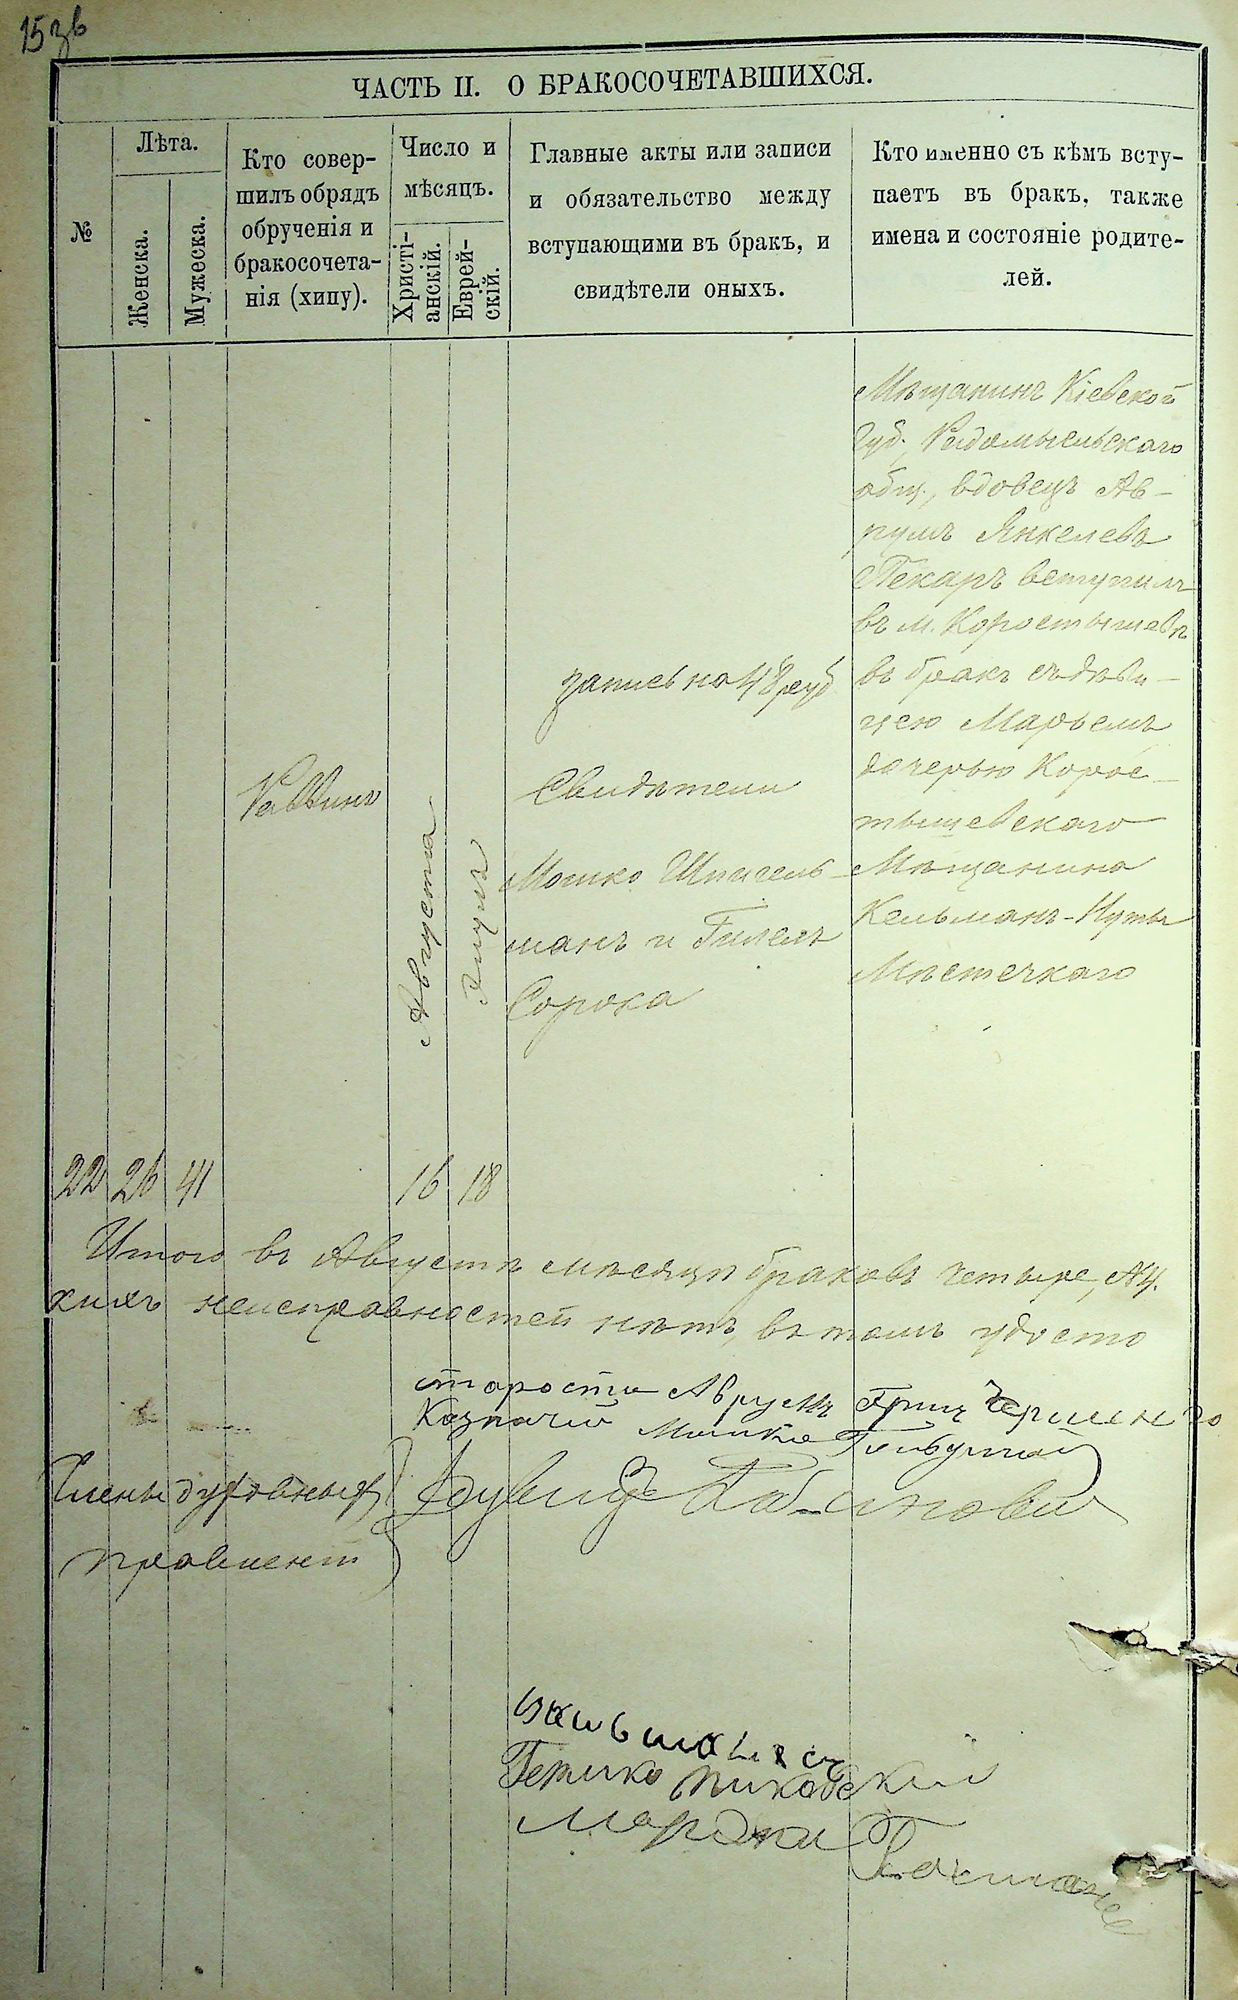 15 зв
ЧАСТЬ II. О БРАКОСОЧЕТАВШИХСЯ.
№
Лѣта.
Женска.
Мужеска.
Кто совер-
шилъ обрядъ
обрученія и
бракосочета-
нія (хипу).
Число и
мѣсяцъ.
Христі-
анскій.
Еврей-
скій.
Главные акты или записи
и обязательство между
вступающими въ бракъ, и
свидѣтели оныхъ.
Кто именно съ кѣмъ всту-
паетъ въ бракъ, также
имена и состояніе родите-
лей.
22
26
41
Раввинъ
Августа
16
18
запись на 48 руб
Свидѣтели
Мошко Шпигель-
манъ и Гилель
Сорока
Мѣщанинъ Кіевской
Губ., Радомысльскаго
общ., вдовецъ Ав-
румъ Янкелевъ
Пекаръ вступилъ
въ м. Коростышевѣ
въ бракъ съ дѣви-
цею Марьемъ
дочерью Корос-
тышевскаго
Мѣщанина
Кельманъ-Нуты
Мѣстечкаго
Итого въ Августѣ мѣсяцѣ браковъ четыре, №4.
неисправностей нѣтъ, въ томъ удосто
староста Аврумъ
Казначей Мошко
Члены духовныхъ
правленій
Гершко
Мордко